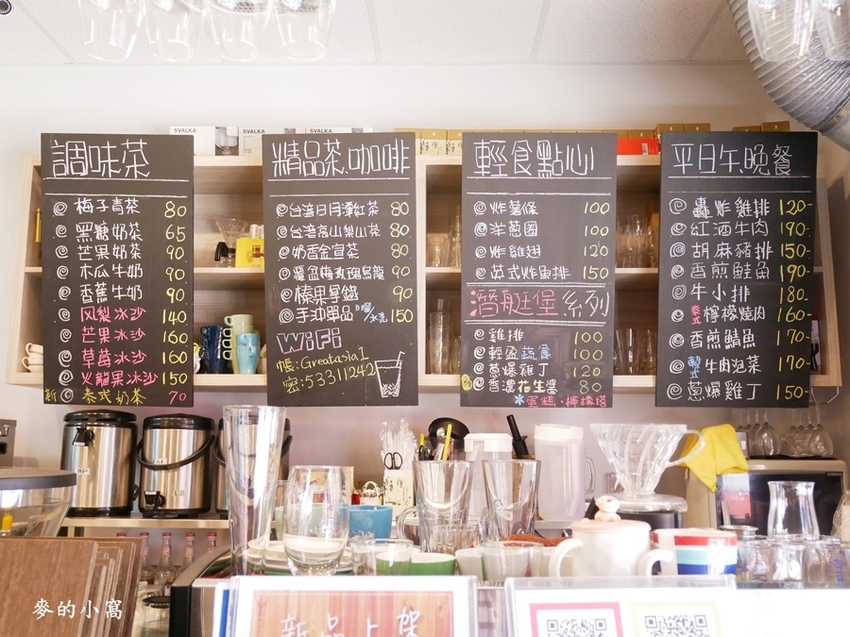 SVALKA
SVALKA
調味茶
梅子青茶 80
黑糖奶茶 65
芒果奶茶 90
木瓜牛奶 90
香蕉牛奶 90
风梨冰沙 140
芒果冰沙 160
草莓冰沙 160
火龍果冰沙 150
新 泰式奶茶 70
精品茶.咖啡
台湾日月潭紅茶 80
台湾高山樂山茶 80
奶香金宣茶 80
覆盆梅玫瑰烏龍 90
榛果拿鐵 90
手沖單品 150
WiFi
帳:Greatasia1
密:53311242
輕食點心
炸薯條 100
洋蔥圈 100
炸雞翅 120
英式炸魚排 150
潛艇堡系列
雞排 100
輕盈蔬食 100
蔥爆雞丁 120
香濃花生醬 80
*蛋糕.檸檬塔
平日午.晚餐
轟炸雞排 120-
紅酒牛肉 190-
胡麻豬排 150-
香煎鮭魚 190-
牛小排 180-
泰式檸檬燒肉 160-
香煎鯖魚 170-
韓式牛肉泡菜 170-
蔥爆雞丁 150-
新品上架
麥的小窩